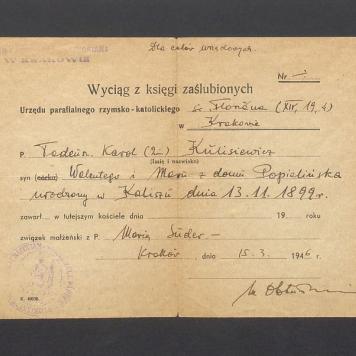 W KRAKOWIE
Dla celów urzędowych.
Nr
Wyciąg z księgi zaślubionych
Urzędu parafialnego rzymsko-katolickiego św. Floriana (XIV, 19, 4)
w Krakowie
P. Tadeusz Karol (2im.) Kulisiewicz
(Imię i nazwisko)
syn (córka) Walentego i Marii z domu Popielińska
urodzony w Kaliszu dnia 13.11.1899 r.
zawarł... w tutejszym kościele dnia 19 roku
związek małżeński z P. Marią Süder –
Kraków, dnia 15.3. 1946 r.